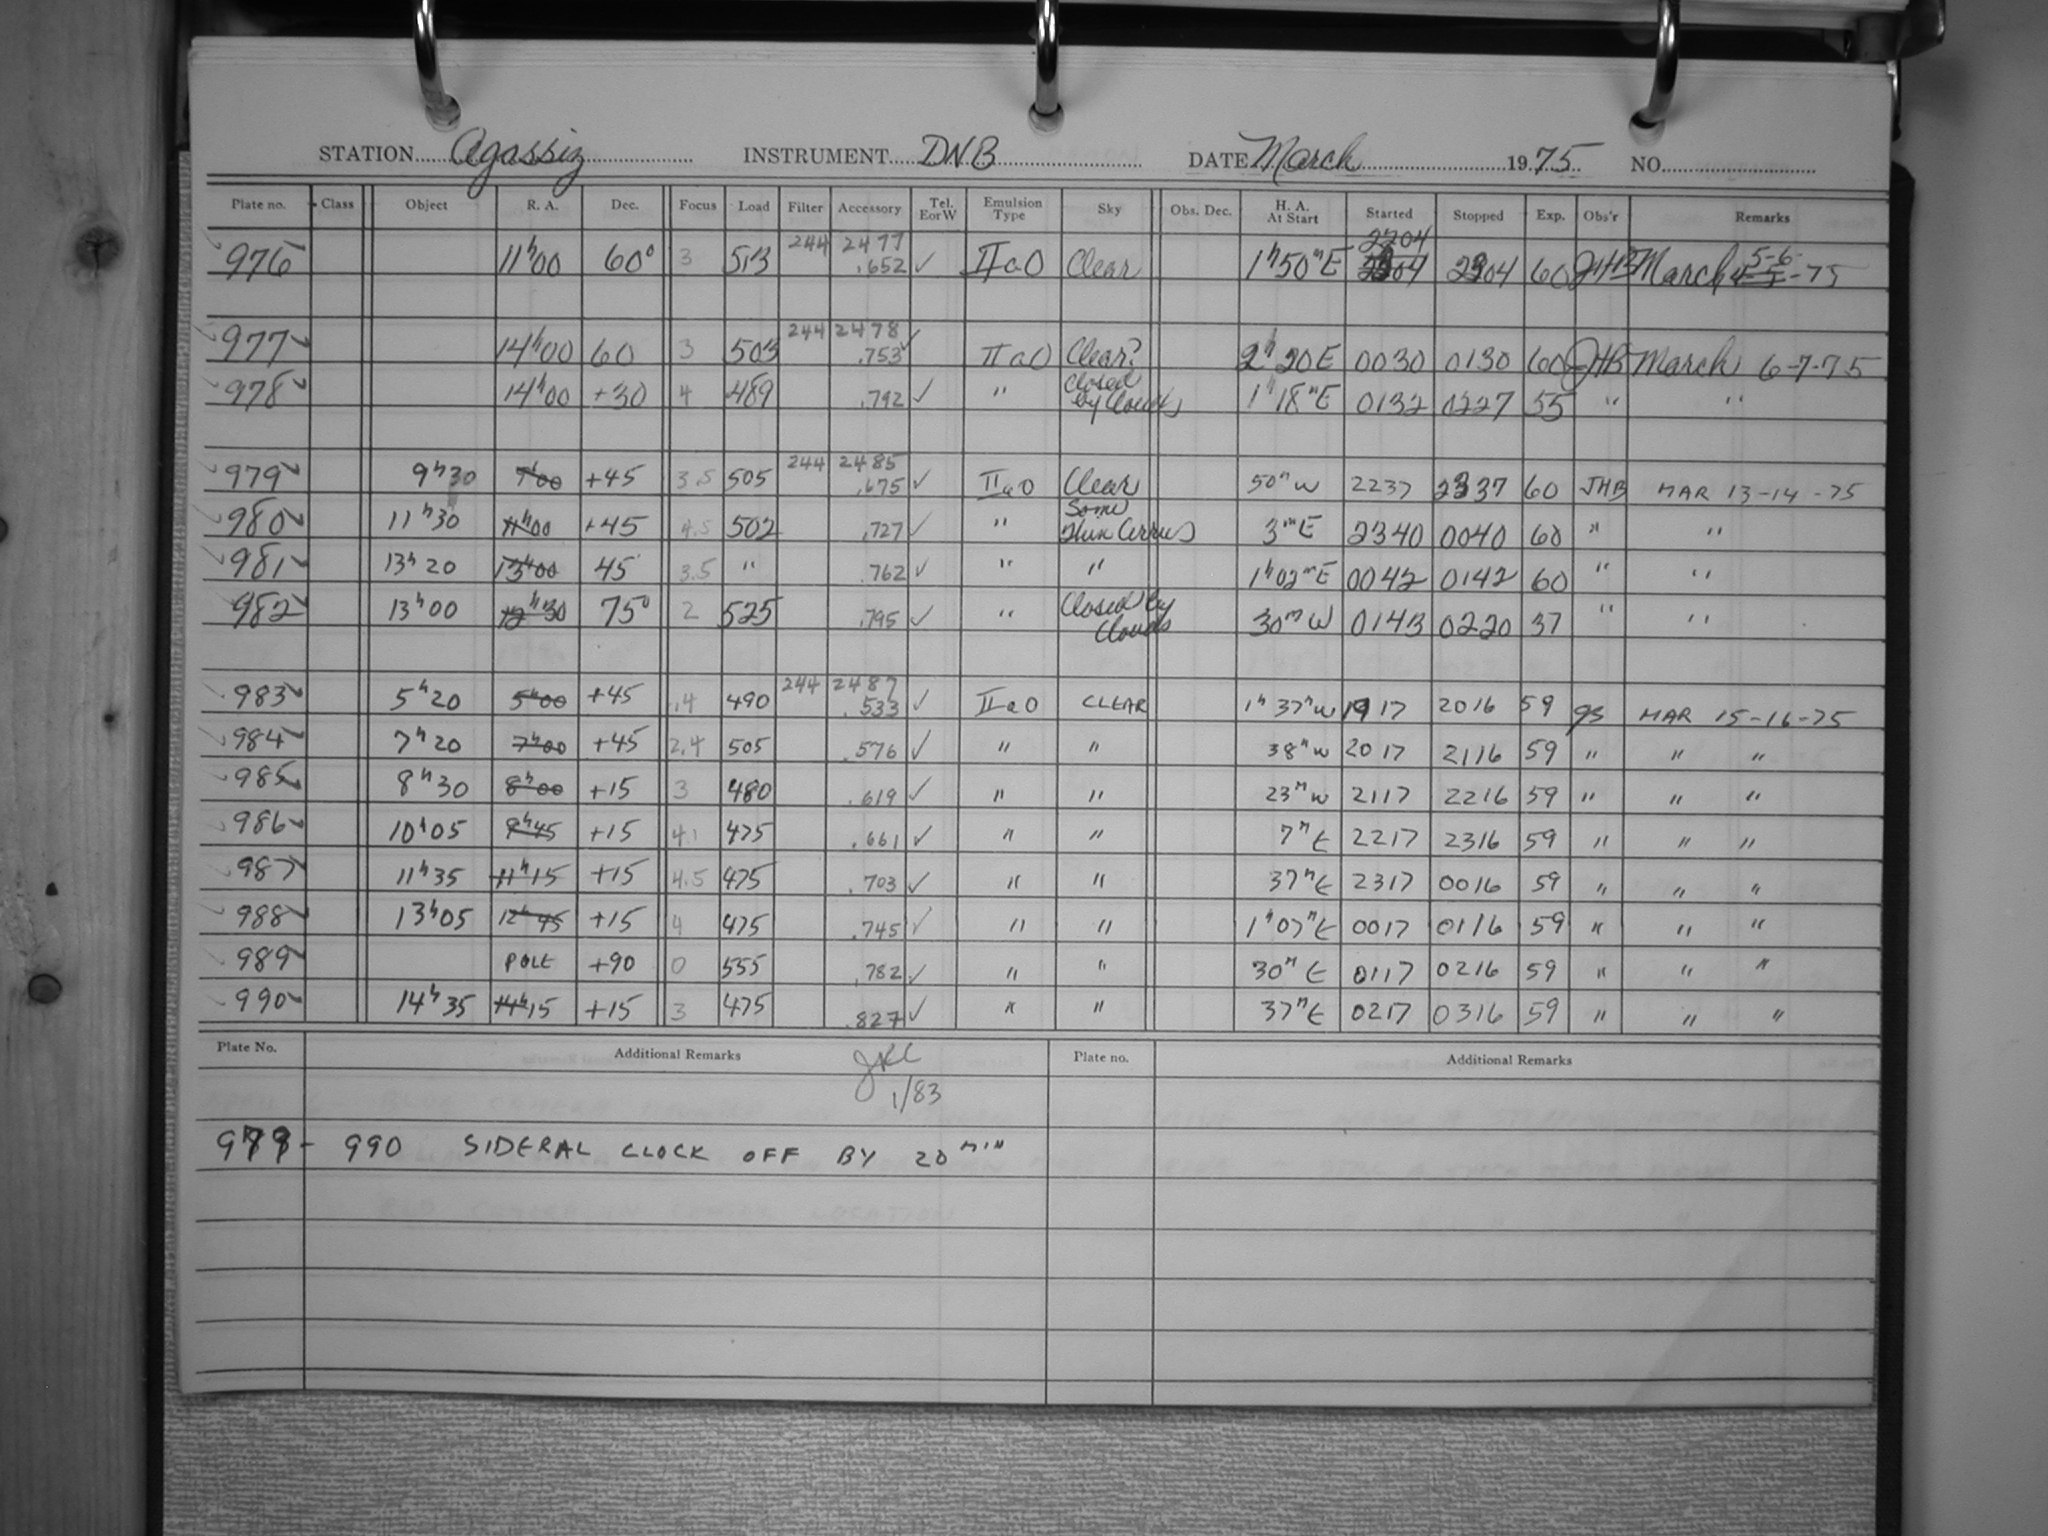 STATION Agassiz INSTRUMENT DNB DATE March 1975 NO.
Plate no. Class Object R. A. Dec. Focus Load Filter Accessory Tel. E or W Emulsion Type Sky Obs. Dec. H. A. At Start Started Stopped Exp. Obs'r Remarks
244 2477 2204
976 11h00 60° 3 513 .652 ✓ IIaO Clear 1h50mE 2304 2304 60 JHB March 4-5 5-6-75
244 2478
977 14h00 60 3 503 .753 ✓ IIaO Clear? 2h20E 0030 0130 60 JHB March 6-7-75
978 14h00 +30 4 489 .792 ✓ " Closed by Clouds 1h18mE 0132 0227 55 " "
244 2485
979 9h30 9h00 +45 3.5 505 .675 ✓ IIaO Clear 50mW 2237 2337 60 JHB MAR 13-14-75
980 11h30 11h00 +45 4.5 502 .727 ✓ " Some Thin Cirrus 3mE 2340 0040 60 " "
981 13h20 13h00 45 3.5 " .762 ✓ " " 1h02mE 0042 0142 60 " "
982 13h00 12h30 75° 2 525 .795 ✓ " Closed by Clouds 30mW 0143 0220 37 " "
244 2487
983 5h20 5h00 +45 .4 490 .533 ✓ IIaO CLEAR 1h37mW 1917 2016 59 gs MAR 15-16-75
984 7h20 7h00 +45 2.4 505 .576 ✓ " " 38mW 2017 2116 59 " " "
985 8h30 8h00 +15 3 480 .619 ✓ " " 23mW 2117 2216 59 " " "
986 10h05 9h45 +15 4.1 475 .661 ✓ " " 7mE 2217 2316 59 " " "
987 11h35 11h15 +15 4.5 475 .703 ✓ " " 37mE 2317 0016 59 " " "
988 13h05 12h45 +15 4 475 .745 ✓ " " 1h07mE 0017 0116 59 " " "
989 POLE +90 0 555 .782 ✓ " " 30mE 0117 0216 59 " " "
990 14h35 14h15 +15 3 475 .827 ✓ " " 37mE 0217 0316 59 " " "
Plate No. Additional Remarks Plate no. Additional Remarks
1/83
979 - 990 SIDERAL CLOCK OFF BY 20 MIN